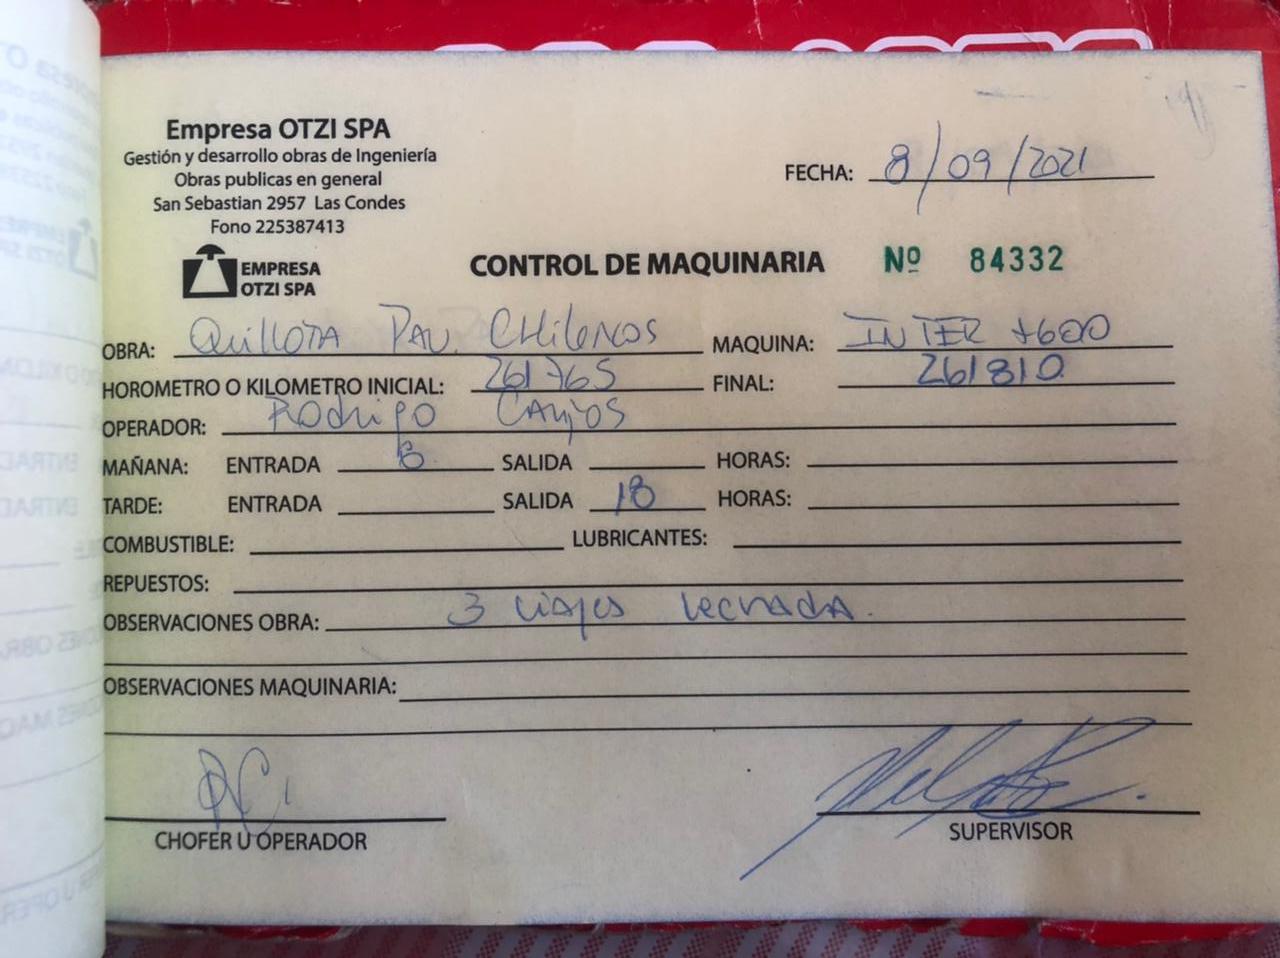 Empresa OTZI SPA
Gestión y desarrollo obras de Ingeniería
Obras publicas en general
San Sebastian 2957 Las Condes
Fono 225387413
FECHA: 8/09/2021
EMPRESA
OTZI SPA
CONTROL DE MAQUINARIA Nº 84332
OBRA: Quillota Pav. Chilenos MAQUINA: INTER 7600
HOROMETRO O KILOMETRO INICIAL: 261765 FINAL: 261810
OPERADOR: Rodrigo
MAÑANA: ENTRADA 8 SALIDA HORAS:
TARDE: ENTRADA SALIDA 18 HORAS:
COMBUSTIBLE: LUBRICANTES:
REPUESTOS:
OBSERVACIONES OBRA: 3 viajes lechada.
OBSERVACIONES MAQUINARIA:
CHOFER U OPERADOR
SUPERVISOR